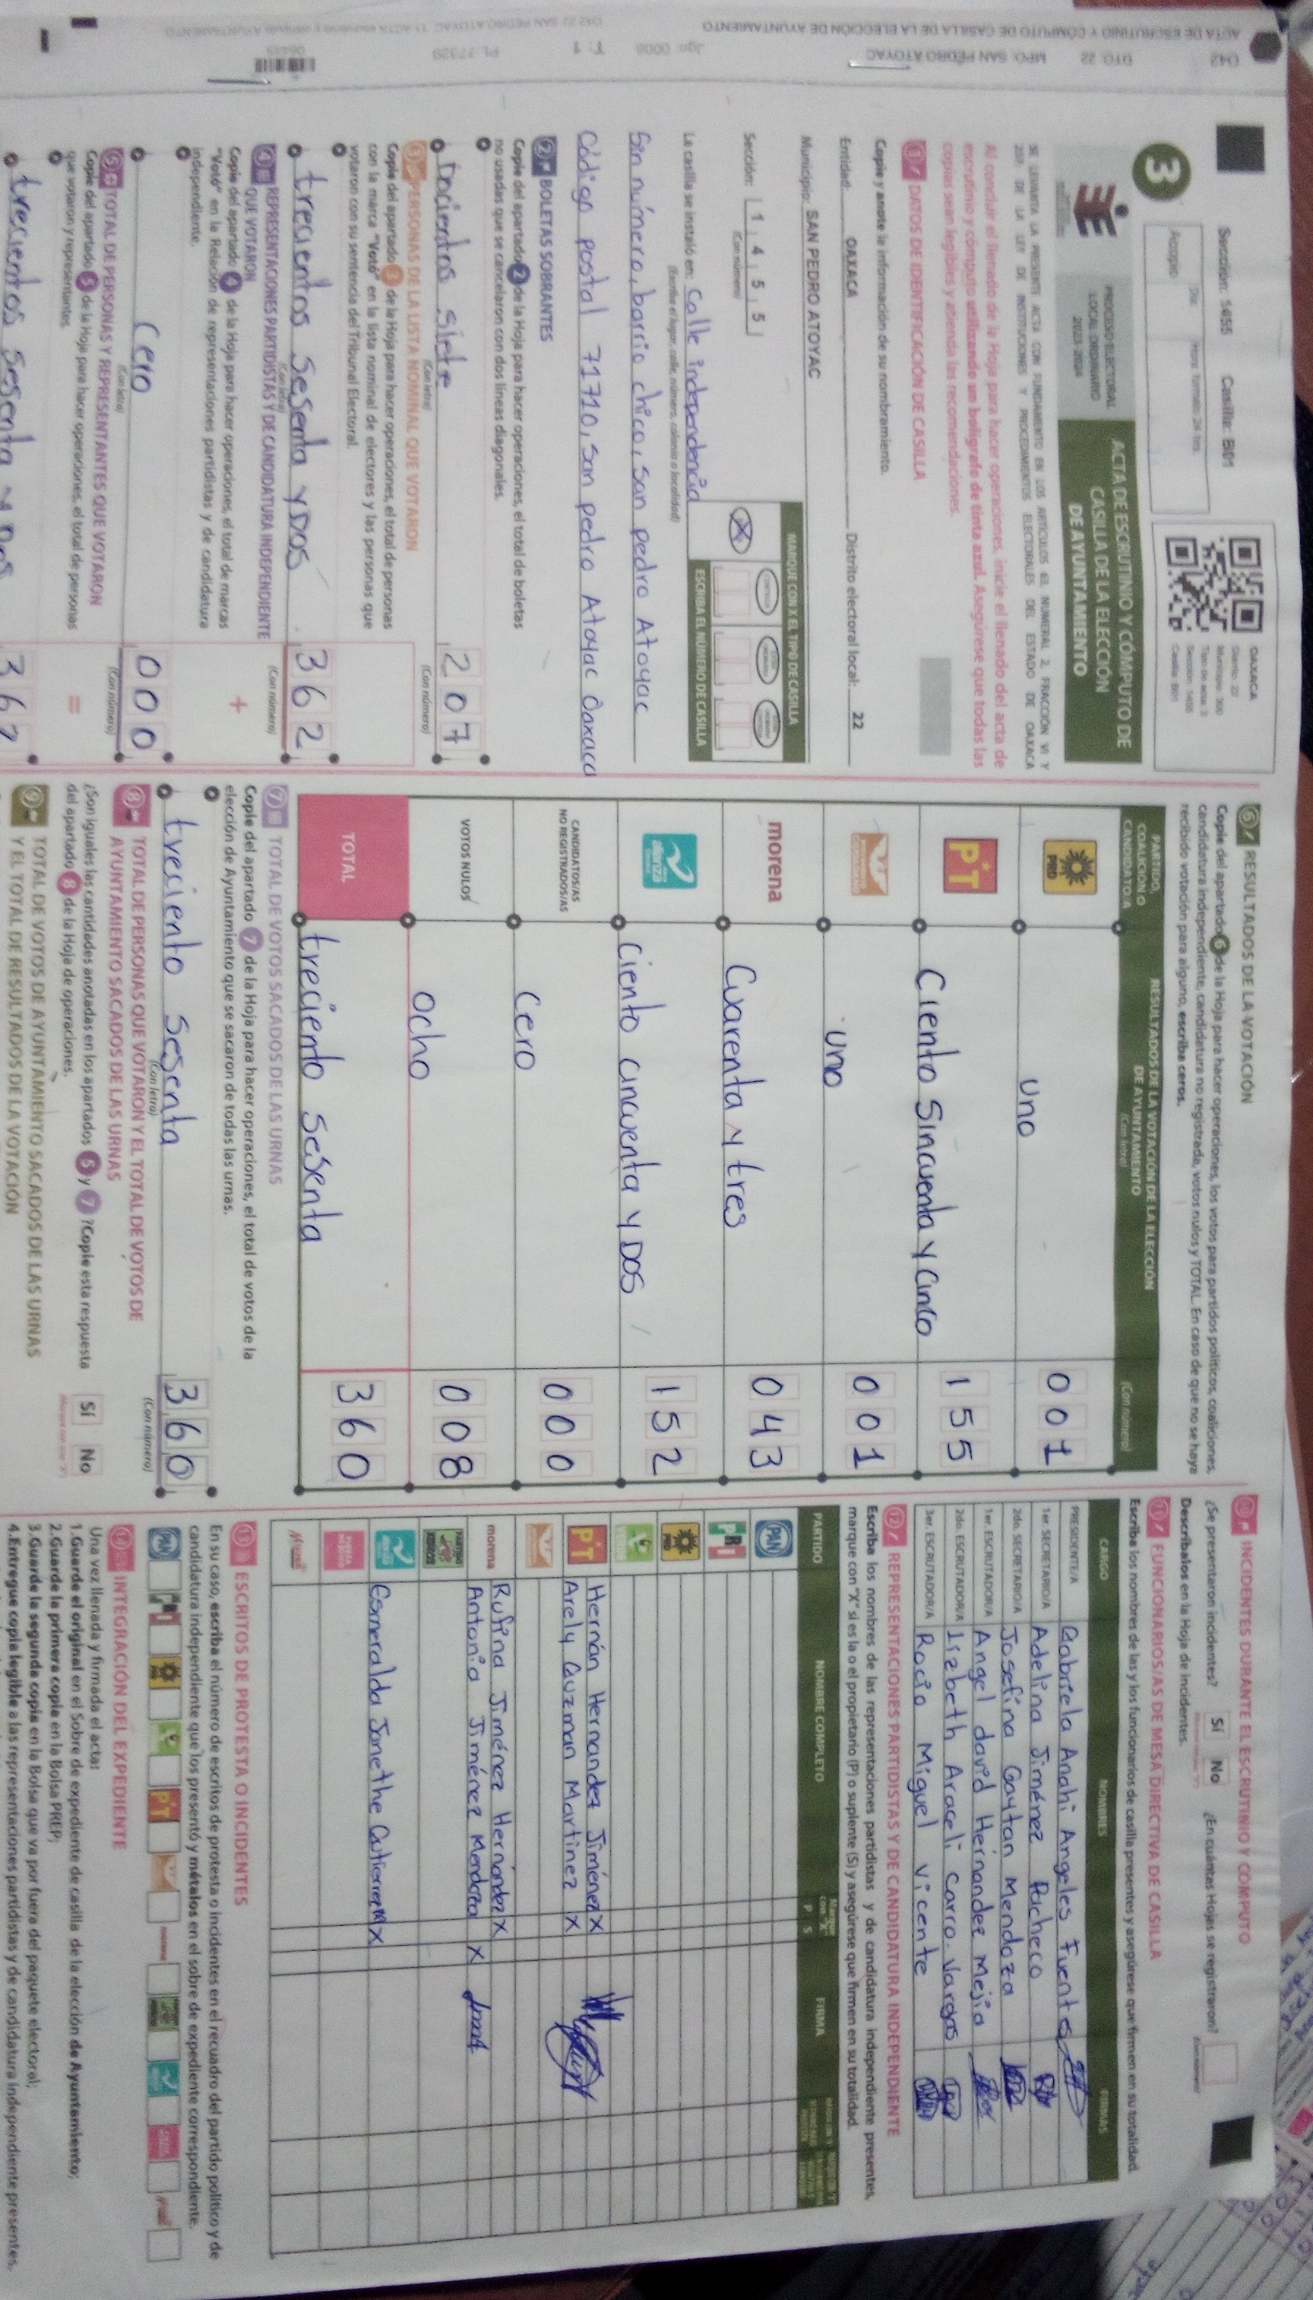 042 DTO: 22 MPO: SAN PEDRO ATOYAC
ACTA DE ESCRUTINIO Y CÓMPUTO DE CASILLA DE LA ELECCIÓN DE AYUNTAMIENTO
Sección: 1455 Casilla: B01
3
Acopio
OAXACA
Distrito: 22
Sección: 1455
Casilla: B01
PROCESO ELECTORAL
LOCAL ORDINARIO
2023-2024
ACTA DE ESCRUTINIO Y CÓMPUTO DE
CASILLA DE LA ELECCIÓN
DE AYUNTAMIENTO
SE LEVANTA LA PRESENTE ACTA CON FUNDAMENTO EN LOS ARTÍCULOS 63, NUMERAL 2, FRACCIÓN VI Y
DE LA LEY DE INSTITUCIONES Y PROCEDIMIENTOS ELECTORALES DEL ESTADO DE OAXACA
Al concluir el llenado de la Hoja para hacer operaciones, inicie el llenado del acta de
escrutinio y cómputo utilizando un bolígrafo de tinta azul. Asegúrese que todas las
copias sean legibles y atienda las recomendaciones.
1 DATOS DE IDENTIFICACIÓN DE CASILLA
Copie y anote la información de su nombramiento.
Entidad: OAXACA Distrito electoral local: 22
Municipio: SAN PEDRO ATOYAC
Sección: 1 4 5 5
(Con número)
MARQUE CON X EL TIPO DE CASILLA
X
ESCRIBA EL NÚMERO DE CASILLA
La casilla se instaló en: Calle independencia
(Escriba el lugar, calle, número, colonia o localidad)
Sin número, barrio chico, San pedro Atoyac
Código postal 71710, San pedro Atoyac Oaxaca
2 BOLETAS SOBRANTES
Copie del apartado 2 de la Hoja para hacer operaciones, el total de boletas
no usadas que se cancelaron con dos líneas diagonales.
Docientos siete 2 0 7
(Con letra) (Con número)
3 PERSONAS DE LA LISTA NOMINAL QUE VOTARON
Copie del apartado 3 de la Hoja para hacer operaciones, el total de personas
con la marca "Votó" en la lista nominal de electores y las personas que
votaron con su sentencia del Tribunal Electoral.
trecientos Sesenta y DOS 3 6 2
(Con letra) (Con número)
4 REPRESENTACIONES PARTIDISTAS Y DE CANDIDATURA INDEPENDIENTE
QUE VOTARON
Copie del apartado 4 de la Hoja para hacer operaciones, el total de marcas
"Votó" en la Relación de representaciones partidistas y de candidatura
independiente.
+
Cero 0 0 0
(Con letra) (Con número)
5 TOTAL DE PERSONAS Y REPRESENTANTES QUE VOTARON
Copie del apartado 5 de la Hoja para hacer operaciones, el total de personas
que votaron y representantes.
=
trecientos sesenta y Dos 3 6 2
6 RESULTADOS DE LA VOTACIÓN
Copie del apartado 6 de la Hoja para hacer operaciones, los votos para partidos políticos, coaliciones,
candidatura independiente, candidatura no registrada, votos nulos y TOTAL. En caso de que no se haya
recibido votación para alguno, escriba ceros.
PARTIDO, COALICIÓN O CANDIDATO/A
RESULTADOS DE LA VOTACIÓN DE LA ELECCIÓN
DE AYUNTAMIENTO
(Con letra) (Con número)
PRD Uno 0 0 1
PT Ciento Sincuenta y Cinco 1 5 5
Uno 0 0 1
morena Cuarenta y tres 0 4 3
nueva alianza Ciento cincuenta y DOS 1 5 2
CANDIDATOS/AS NO REGISTRADOS/AS Cero 0 0 0
VOTOS NULOS ocho 0 0 8
TOTAL treciento Sesenta 3 6 0
7 TOTAL DE VOTOS SACADOS DE LAS URNAS
Copie del apartado 7 de la Hoja para hacer operaciones, el total de votos de la
elección de Ayuntamiento que se sacaron de todas las urnas.
treciento Sesenta 3 6 0
(Con letra) (Con número)
8 TOTAL DE PERSONAS QUE VOTARON Y EL TOTAL DE VOTOS DE
AYUNTAMIENTO SACADOS DE LAS URNAS
¿Son iguales las cantidades anotadas en los apartados 5 y 7? Copie esta respuesta
del apartado 8 de la Hoja de operaciones.
Sí No
9 TOTAL DE VOTOS DE AYUNTAMIENTO SACADOS DE LAS URNAS
Y EL TOTAL DE RESULTADOS DE LA VOTACIÓN
10 INCIDENTES DURANTE EL ESCRUTINIO Y CÓMPUTO
¿Se presentaron incidentes? Sí No ¿En cuántas Hojas se registraron?
Descríbalos en la Hoja de Incidentes.
11 FUNCIONARIOS/AS DE MESA DIRECTIVA DE CASILLA
Escriba los nombres de las y los funcionarios de casilla presentes y asegúrese que firmen en su totalidad.
CARGO NOMBRES FIRMAS
PRESIDENTE/A Gabriela Anahi Angeles Fuentes
1er. SECRETARIO/A Adelina Jiménez Pacheco
2do. SECRETARIO/A Josefina Gaytan Mendoza
1er. ESCRUTADOR/A Angel david Hernandez Mejia
2do. ESCRUTADOR/A Lizbeth Araceli Carro. Vargas
3er. ESCRUTADOR/A Rocio Miguel Vicente
12 REPRESENTACIONES PARTIDISTAS Y DE CANDIDATURA INDEPENDIENTE
Escriba los nombres de las representaciones partidistas y de candidatura independiente presentes,
marque con "X" si es la o el propietario (P) o suplente (S) y asegúrese que firmen en su totalidad.
PARTIDO NOMBRE COMPLETO P S FIRMA
PAN
PRI
PRD
PT Hernán Hernandez Jiménez X
Arely Guzman Martinez X
morena Rufina Jiménez Hernández X
Antonia Jiménez Mendoza X
Esmeralda Janethe Gutierrez X
13 ESCRITOS DE PROTESTA O INCIDENTES
En su caso, escriba el número de escritos de protesta o incidentes en el recuadro del partido político y de
candidatura independiente que los presentó y métalos en el sobre de expediente correspondiente.
PAN PRI PRD PT
14 INTEGRACIÓN DEL EXPEDIENTE
Una vez llenada y firmada el acta:
1.Guarde el original en el Sobre de expediente de casilla de la elección de Ayuntamiento;
2.Guarde la primera copia en la Bolsa PREP;
3.Guarde la segunda copia en la Bolsa que va por fuera del paquete electoral;
4.Entregue copia legible a las representaciones partidistas y de candidatura independiente presentes.